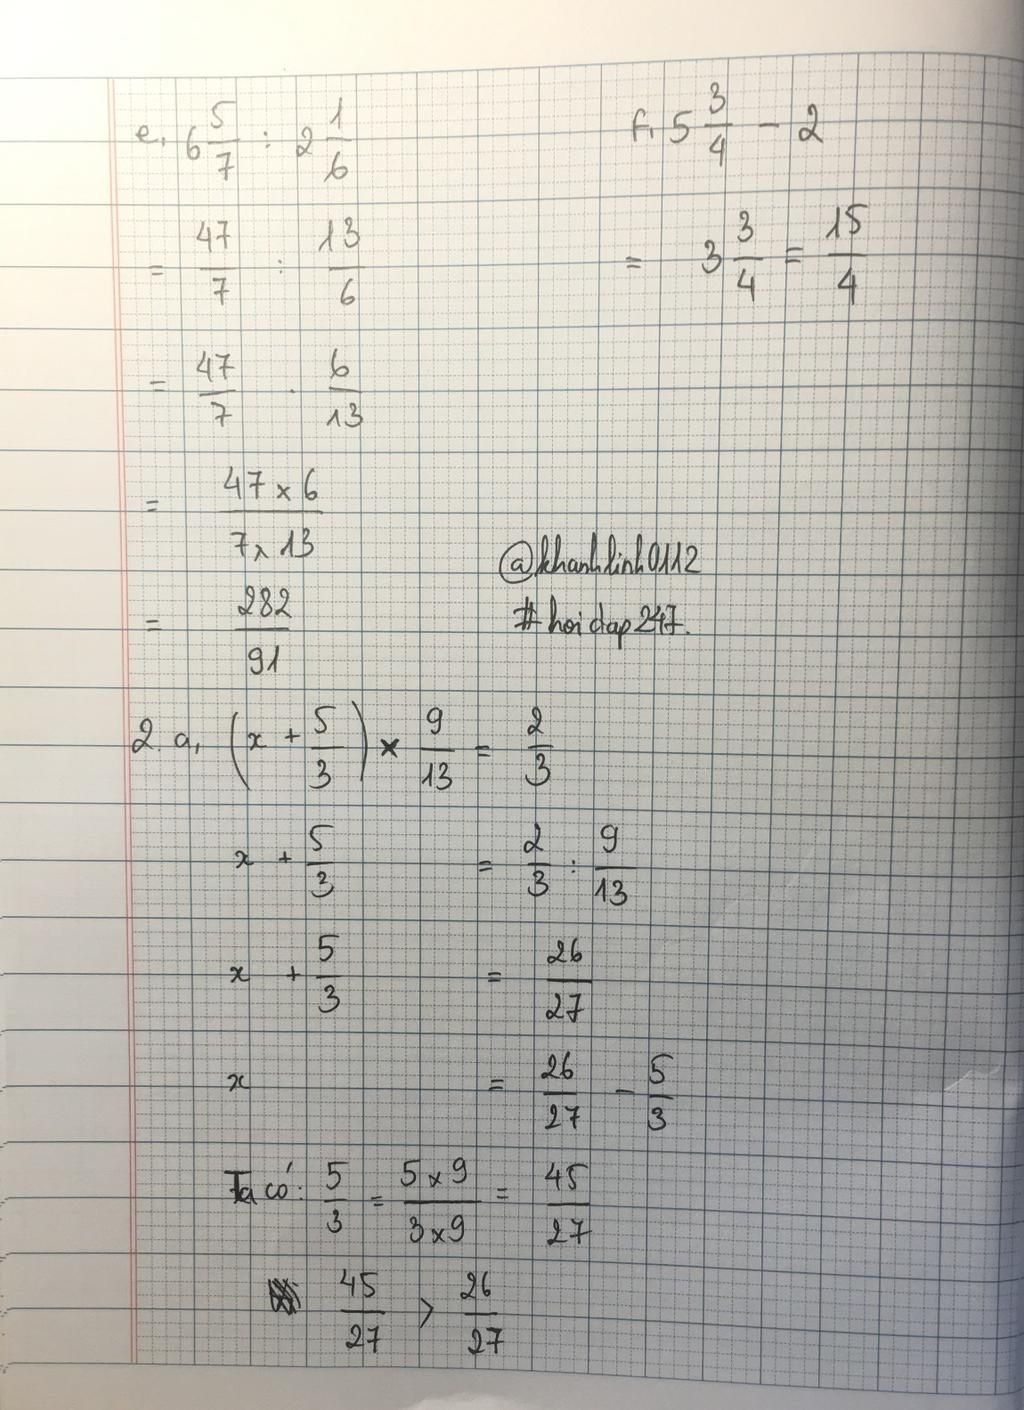 e, 6 5/7 : 2 1/6
= 47/7 : 13/6
= 47/7 . 6/13
= 47 x 6 / 7 x 13
= 282/91
f, 5 3/4 - 2
= 3 3/4 = 15/4
@khanhlinh0112
#hoidap247.
2. a, (x + 5/3) x 9/13 = 2/3
x + 5/3 = 2/3 : 9/13
x + 5/3 = 26/27
x = 26/27 - 5/3
Ta có: 5/3 = 5 x 9 / 3 x 9 = 45/27
45/27 > 26/27